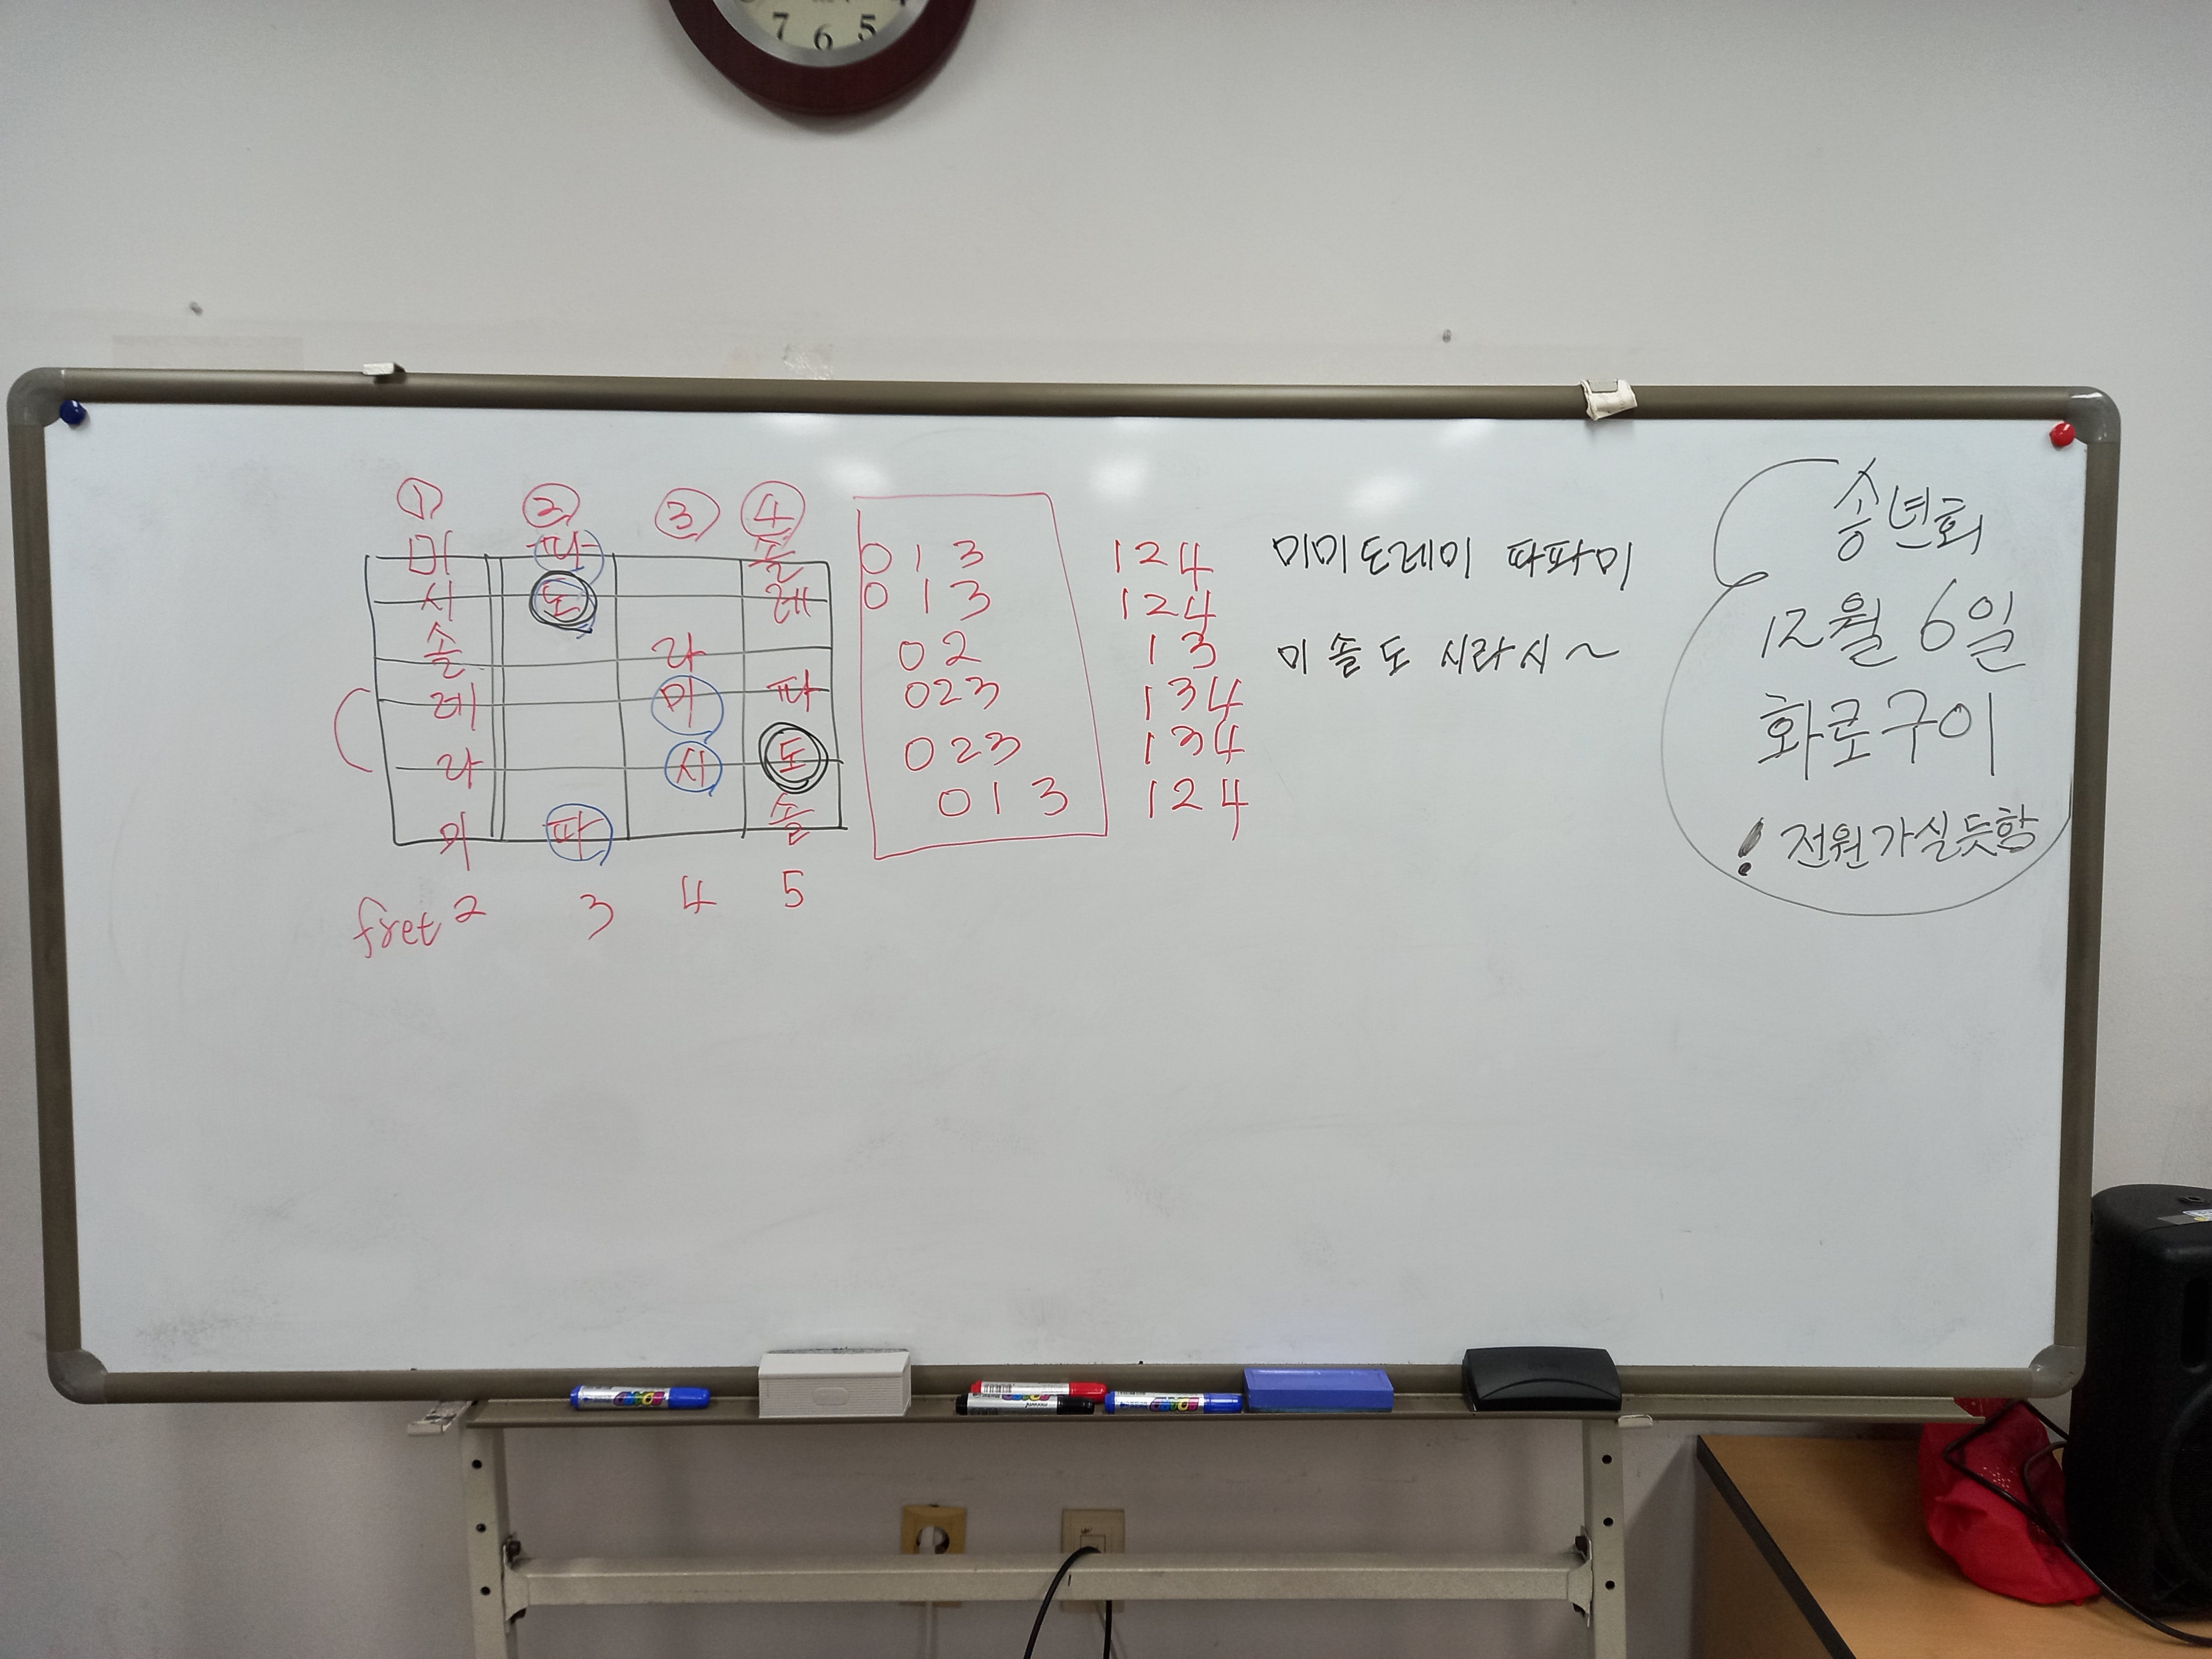 7 6 5
① ② ③ ④
미 파 솔 0 1 3 1 2 4 미미도레미 파파미
시 도 레 0 1 3 1 2 4
솔 라 0 2 1 3 미 솔 도 시라시~
레 미 파 0 2 3 1 3 4
라 시 도 0 2 3 1 3 4
미 파 솔 0 1 3 1 2 4
fret 2 3 4 5
송년회
12월 6일
화로구이
! 전원가실듯함